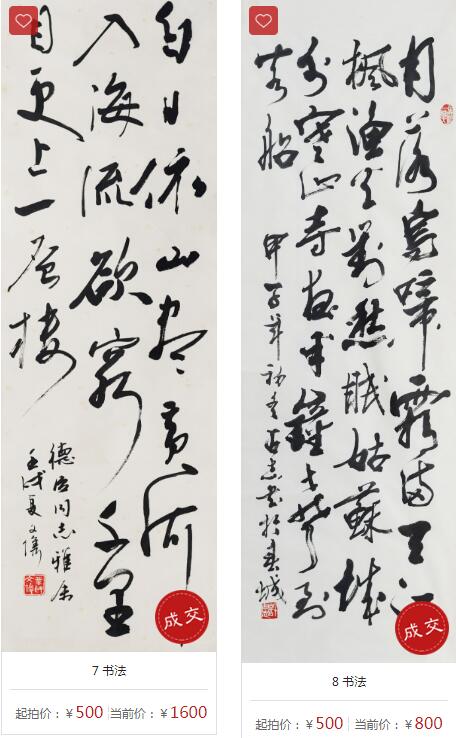 白日依山尽黄河
入海流欲窮千里
目更上一层楼
同志雅属
壬戌夏
成交
7 书法
起拍价：￥500 当前价：￥1600
月落烏啼霜满天江
枫渔火對愁眠姑蘇城
外寒山寺夜半鐘聲到
客船
甲子年初冬
書於春城
成交
8 书法
起拍价：￥500 当前价：￥800